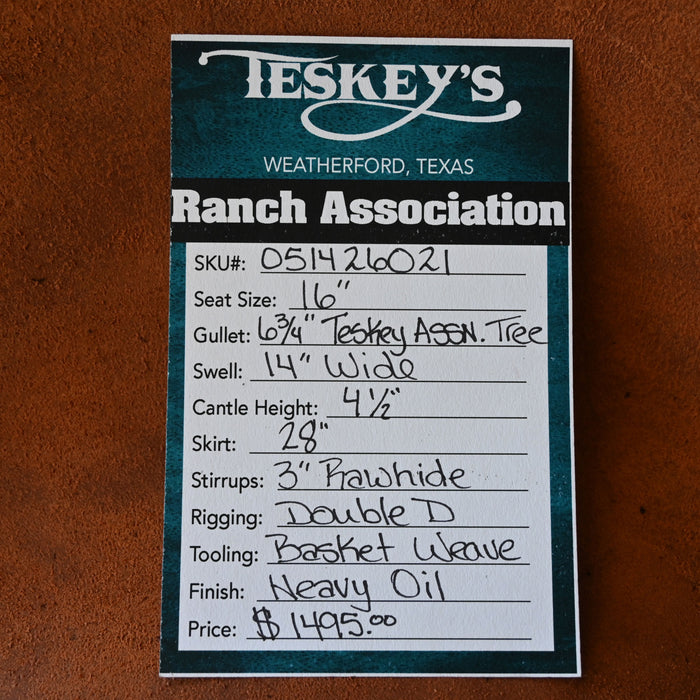 TESKEY'S
WEATHERFORD, TEXAS
Ranch Association
SKU#: 051426021
Seat Size: 16"
Gullet: 6 3/4" Teskey ASSN. Tree
Swell: 14" Wide
Cantle Height: 4 1/2"
Skirt: 28"
Stirrups: 3" Rawhide
Rigging: Double D
Tooling: Basket Weave
Finish: Heavy Oil
Price: $1495.00